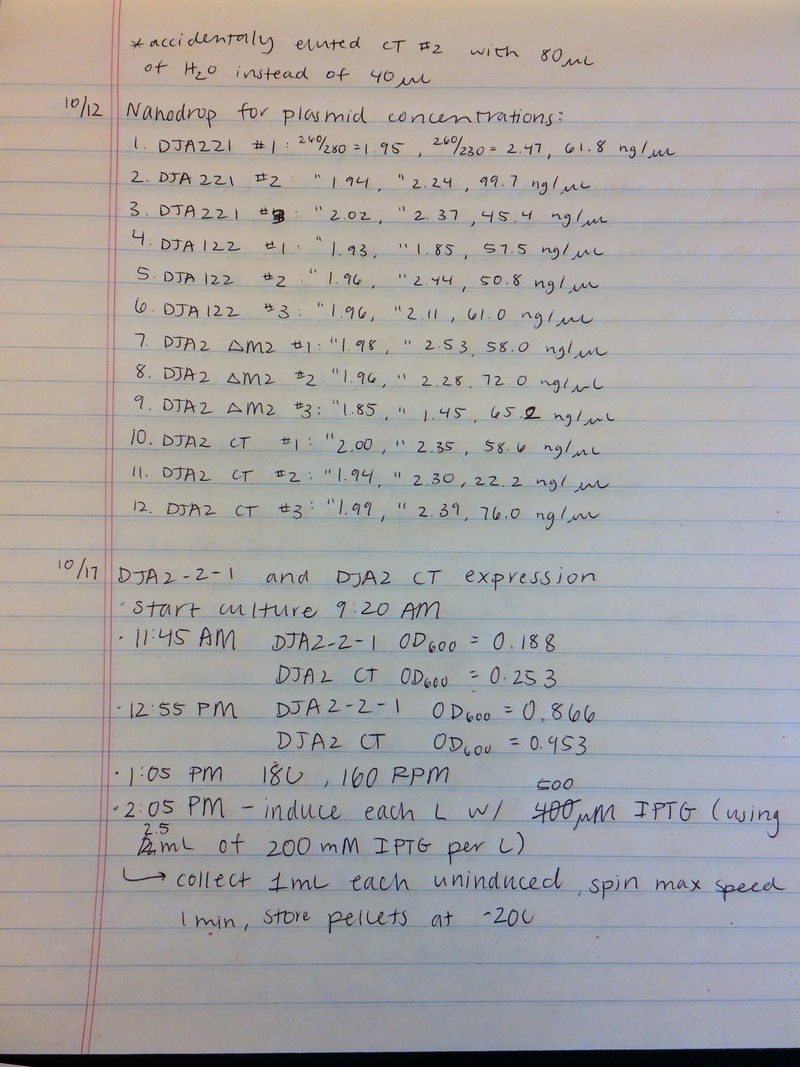 *accidentally eluted CT #2 with 80µL
of H₂O instead of 40µL
10/12 Nanodrop for plasmid concentrations:
1. DJA221 #1: 260/280 = 1.95, 260/230 = 2.47, 61.8 ng/µL
2. DJA 221 #2 " 1.94, " 2.24, 99.7 ng/µL
3. DJA221 #3: " 2.02, " 2.37, 45.4 ng/µL
4. DJA 122 #1: " 1.93, " 1.85, 57.5 ng/µL
5. DJA 122 #2: " 1.96, " 2.44, 50.8 ng/µL
6. DJA 122 #3: "1.96, "2.11, 61.0 ng/µL
7. DJA2 ΔM2 #1: "1.98, " 2.53, 58.0 ng/µL
8. DJA2 ΔM2 #2 "1.96, " 2.28, 72.0 ng/µL
9. DJA2 ΔM2 #3: "1.85, " 1.45, 65.2 ng/µL
10. DJA2 CT #1: "2.00, " 2.35, 58.6 ng/µL
11. DJA2 CT #2: "1.94, " 2.30, 22.2 ng/µL
12. DJA2 CT #3: "1.99, " 2.39, 76.0 ng/µL
10/17 DJA2-2-1 and DJA2 CT expression
· Start culture 9:20 AM
· 11:45 AM DJA2-2-1 OD₆₀₀ = 0.188
DJA2 CT OD₆₀₀ = 0.253
· 12:55 PM DJA2-2-1 OD₆₀₀ = 0.866
DJA2 CT OD₆₀₀ = 0.453
· 1:05 PM 18C, 160 RPM
500
· 2:05 PM - induce each L w/ 400µM IPTG (using
2.5
2mL of 200 mM IPTG per L)
↳ collect 1mL each uninduced, spin max speed
1 min, store pellets at -20C